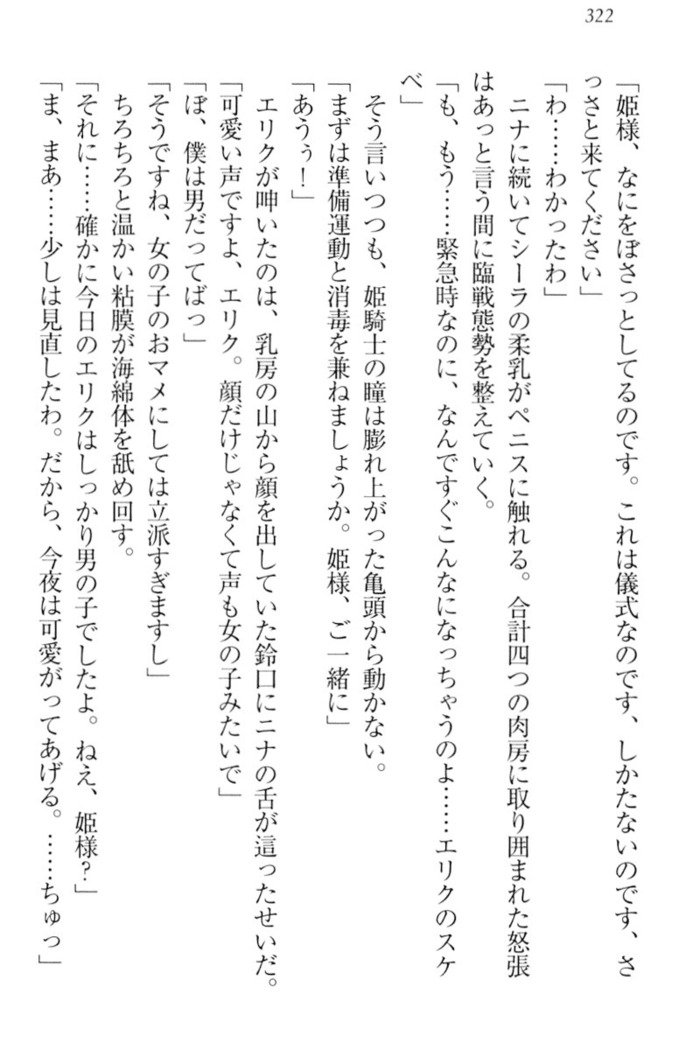 322
「姫様、なにをぼさっとしてるのです。これは儀式なのです、しかたないのです、さ
っさと来てください」
「わ……わかったわ」
ニナに続いてシーラの柔乳がペニスに触れる。合計四つの肉房に取り囲まれた怒張
はあっと言う間に臨戦態勢を整えていく。
「も、もう……緊急時なのに、なんですぐこんなになっちゃうのよ……エリクのスケ
ベ」
そう言いつつも、姫騎士の瞳は膨れ上がった亀頭から動かない。
「まずは準備運動と消毒を兼ねましょうか。姫様、ご一緒に」
「あうぅ！」
エリクが呻いたのは、乳房の山から顔を出していた鈴口にニナの舌が這ったせいだ。
「可愛い声ですよ、エリク。顔だけじゃなくて声も女の子みたいで」
「ぼ、僕は男だってばっ」
「そうですね、女の子のおマメにしては立派すぎますし」
ちろちろと温かい粘膜が海綿体を舐め回す。
「それに……確かに今日のエリクはしっかり男の子でしたよ。ねえ、姫様？」
「ま、まあ……少しは見直したわ。だから、今夜は可愛がってあげる。……ちゅっ」